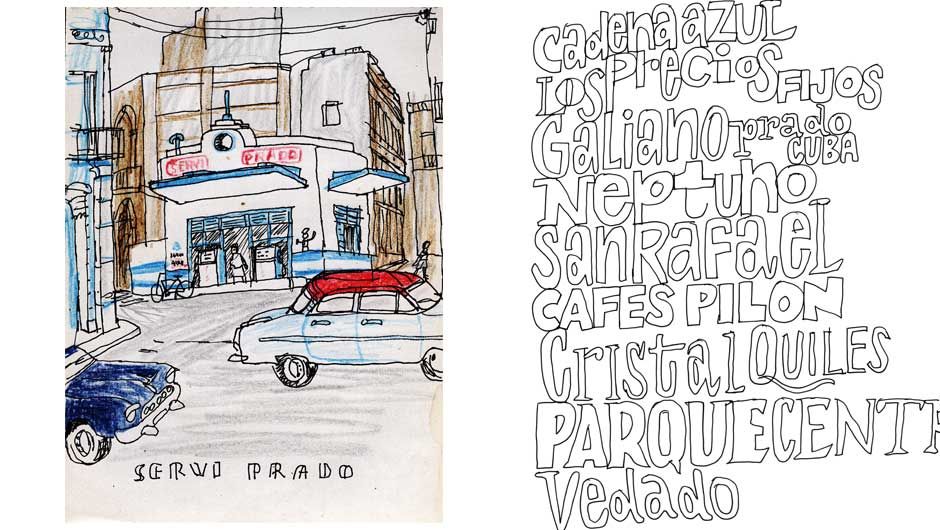 SERVI PRADO
SERVI PRADO
cadena azul
los precios FIJOS
Galiano prado
CUBA
Neptuno
SanRafael
CAFES PILON
Cristal QUILES
PARQUECENT
Vedado